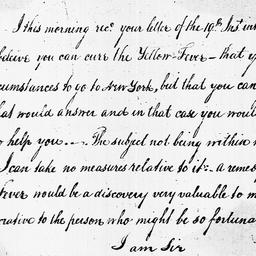 I this morning rec.d your letter of the 19th Inst in
believe you can cure the Yellow-Fever - that y
cumstances to go to New York, but that you can
hat would answer and in that case you woul
o help you . . - The subject not being within
I can take no measures relative to it:- a remed
Fever would be a discovery very valuable to m
crative to the person who might be so fortuna
I am Sir